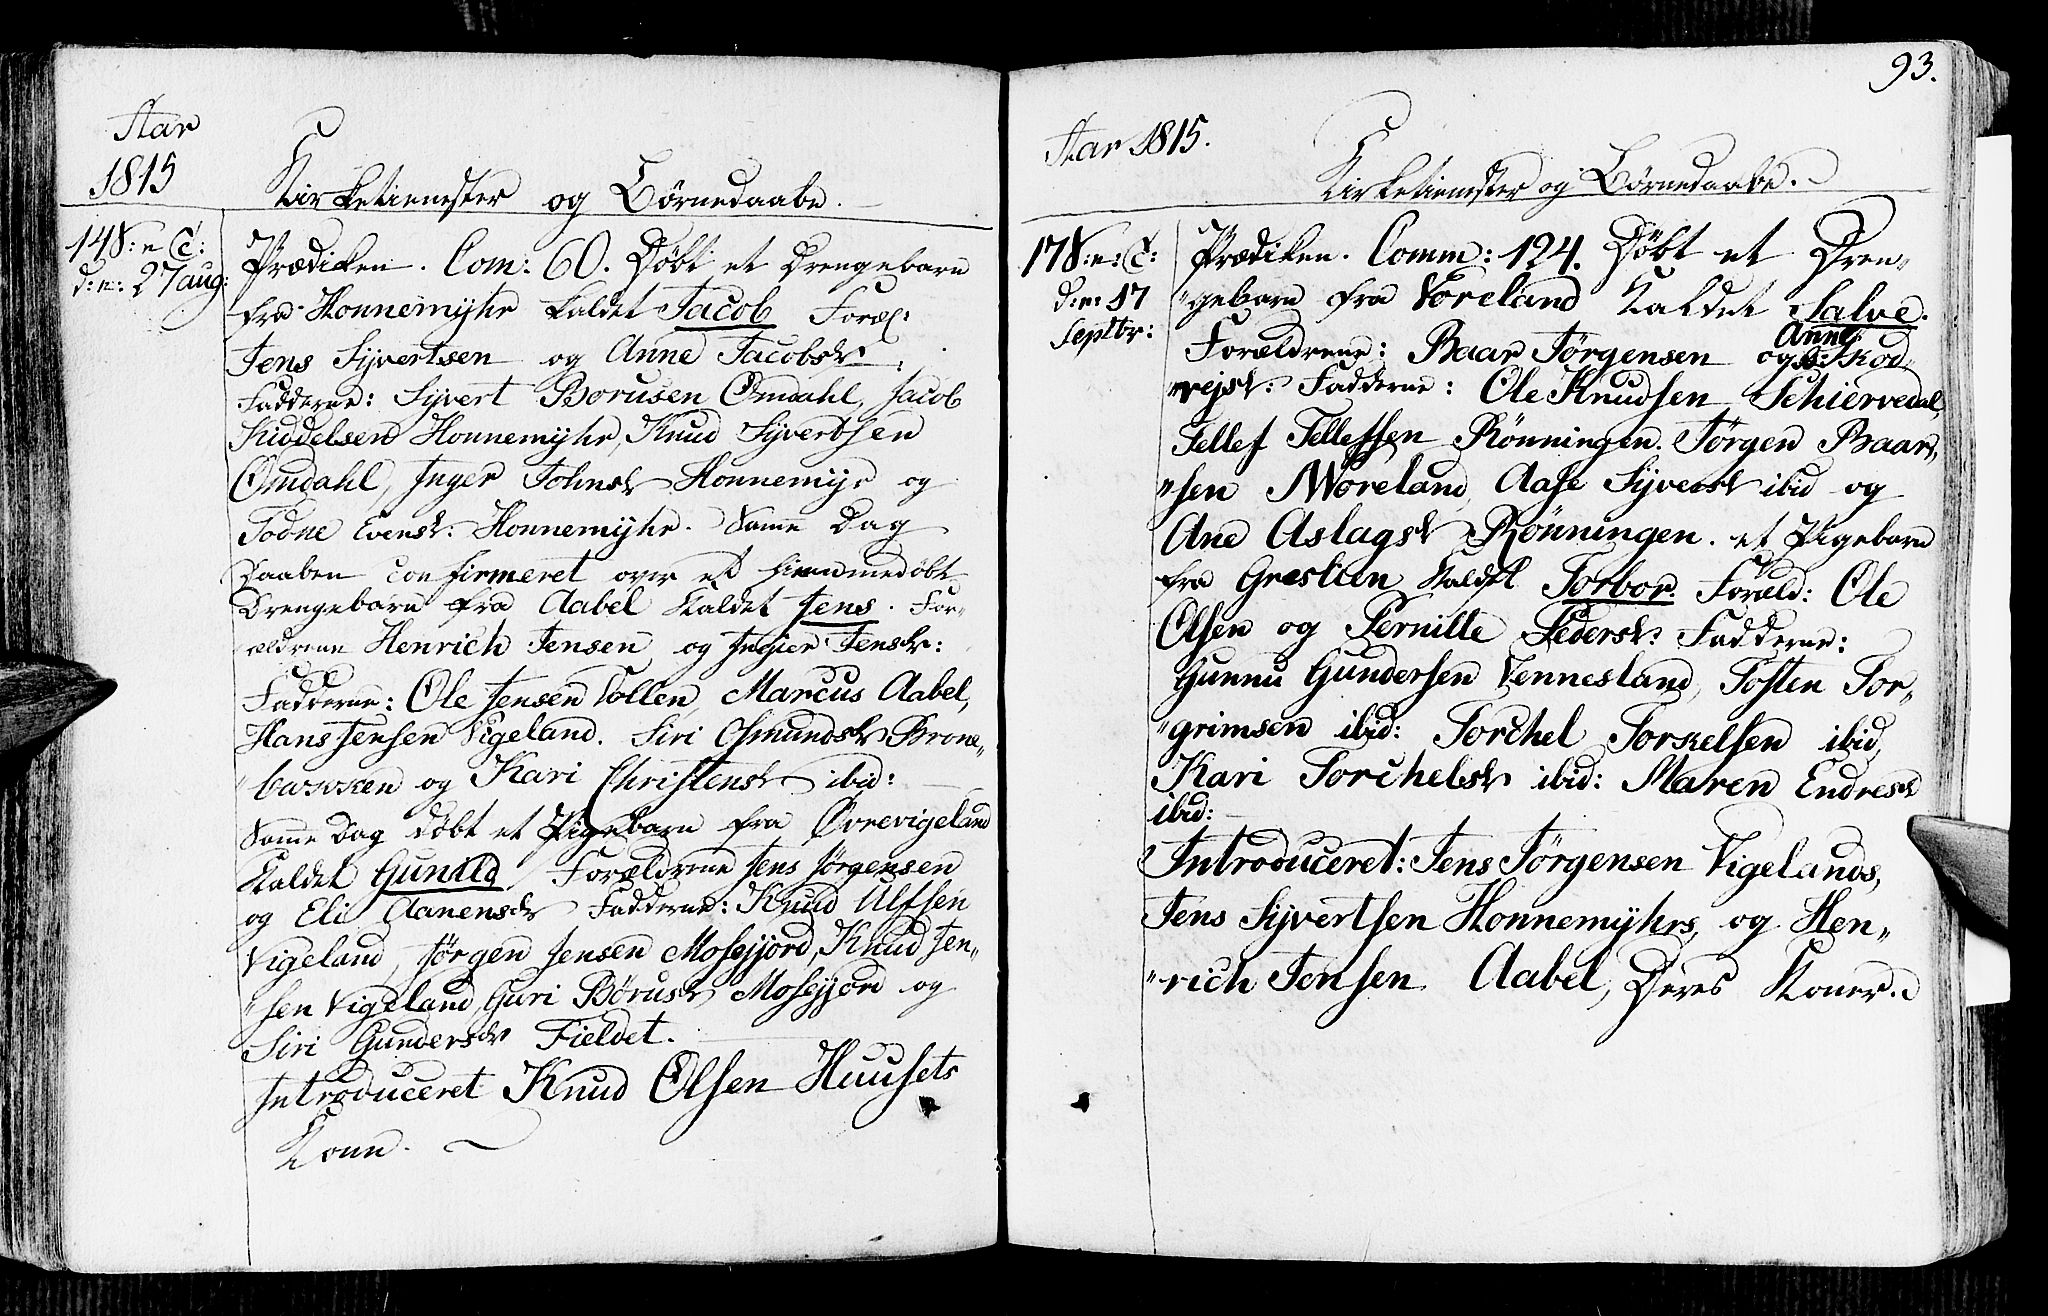 Aar
1815
Kirketienester og Börnedaabe.
14 S: e: T:
d: n: 27 aug:
Prædiken. Com: 60. Döbt et Drengebarn
fra Honnemyhr kaldet Jacob Foræl:
Jens Sijvertsen og Anne Jacobsdr:
Fadderne: Sijvert Borusen Omdahl, Jacob
Kiddelsen Honnemijhr, Knud Sijvertsen
Omdahl, Inger Johnsdr Honnemijr og
Todne Evensdr: Honnemijhr. Samme Dag
Daaben confirmeret over et hiemmedöbt
Drengebarn fra Aabel kaldet Jens. For-
ældrene Henrich Jensen og Ingier Jensdr:
Fadderne: Ole Jensen Vollen, Marcus Aabel,
Hans Jensen Vigeland. Siri Osmundsdr Brone-
backen og Kari Christensdr ibid:
Samme Dag döbt et Pigebarn fra Øvrevigeland
kaldet Gunild Forældrene Jens Jörgensen
og Eli Aanensdr Fadderne: Knud Ulfsen
Vigeland, Jörgen Jensen Mosejjord, Knud Jen-
"sen Vigeland, Guri Börusdr Mosejjord og
Siri Gundersdr Fieldet.
Introduceret Knud Olsen Huusets
Kone.
93.
Aar 1815.
Kirketienester og Börnedaabe.
17 S: e: T:
d: n: 17
Septbr:
Prædiken. Comm: 124. Döbt et Dren-
"gebarn fra Voreland kaldet Salve.
Forældrene: Baar Jörgensen og Anne Kod-
"vejsdr: Fadderne: Ole Knudsen Schiervedal,
Tellef Tellefsen Rönningen. Jörgen Baar-
"sen Moreland, Aase Sijversdr ibid og
Ane Aslagsdr Rönningen. et Pigebarn
fra Grestien kaldet Torbor. Foræld: Ole
Olsen og Pernille Pedersdr: Fadderne:
Gunnu Gundersen Vennesland, Tosten Tor-
"grimsen ibid: Torchel Torkelsen ibid,
Kari Torchelsdr ibid: Maren Endresdr
ibid:
Introduceret: Jens Jörgensen Vigelands,
Jens Sijvertsen Honnemijhrs, og Hen-
"rich Jensen Aabel, Deres Koner.